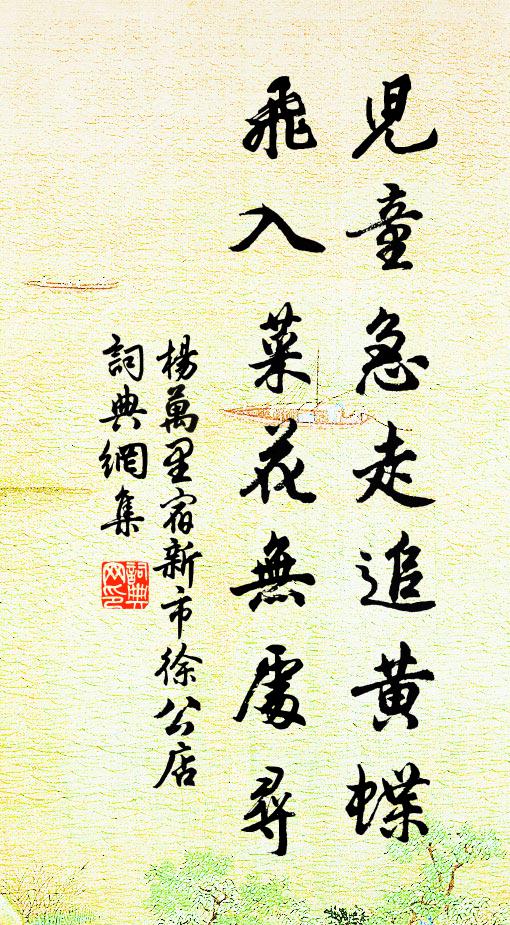 兒童急走追黃蝶
飛入菜花無處尋
楊萬里宿新市徐公店
詞典網集
詞典网印